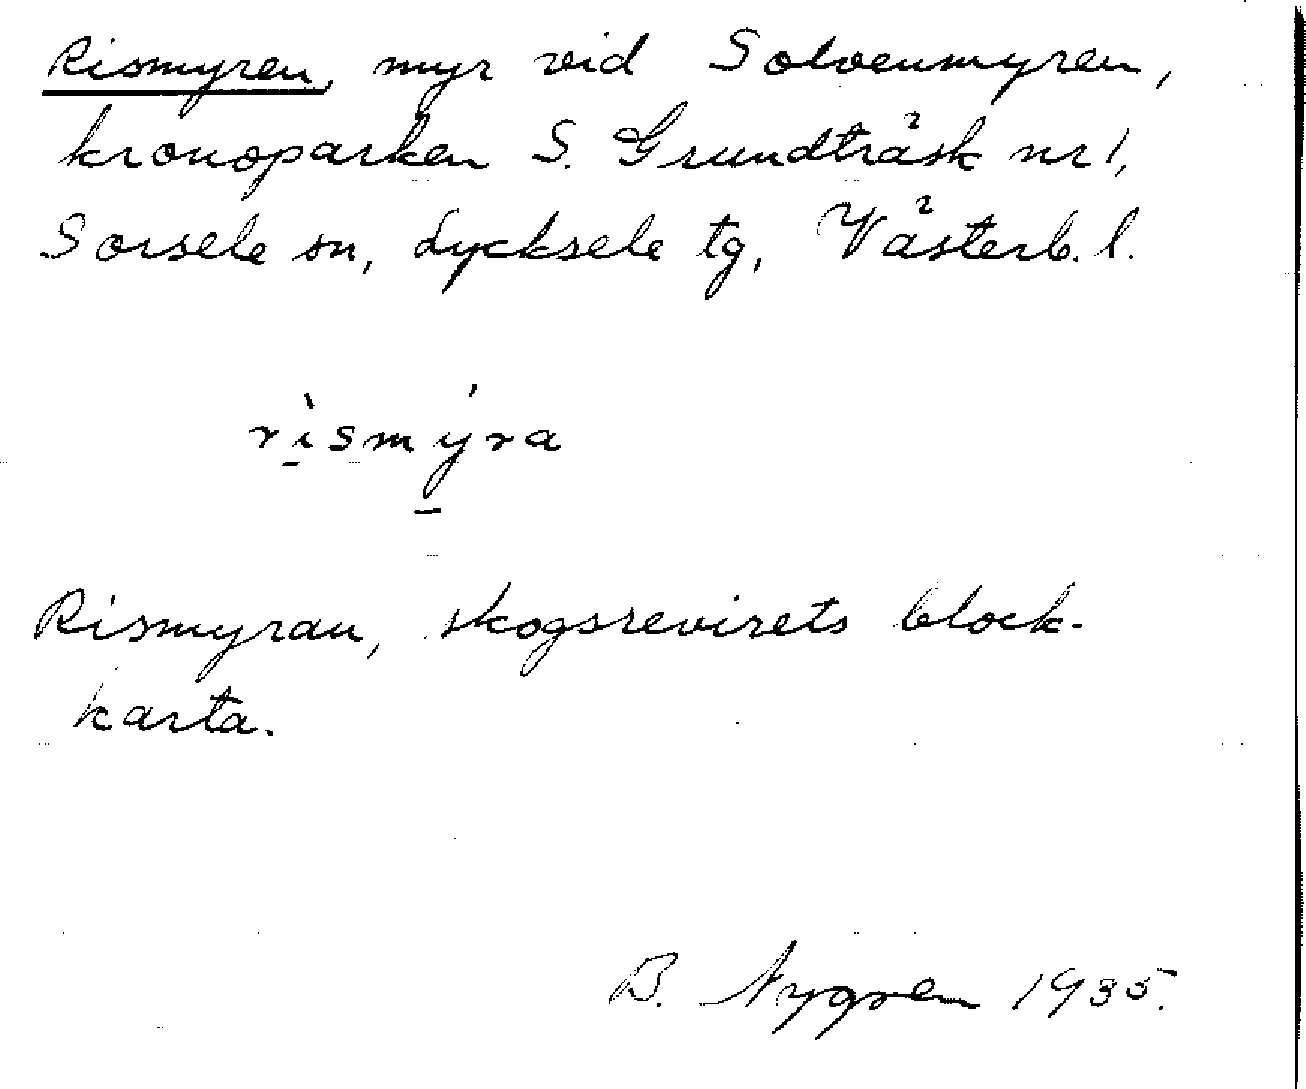 Rismyren, myr vid Solvenmyren,
kronoparken S. Grundträsk nr 1,
Sorsele sn, Lycksele tg, Västerb. l.
rìsmýra
Rismyran, skogsrevirets block-
karta.
B. Nygren 1935.